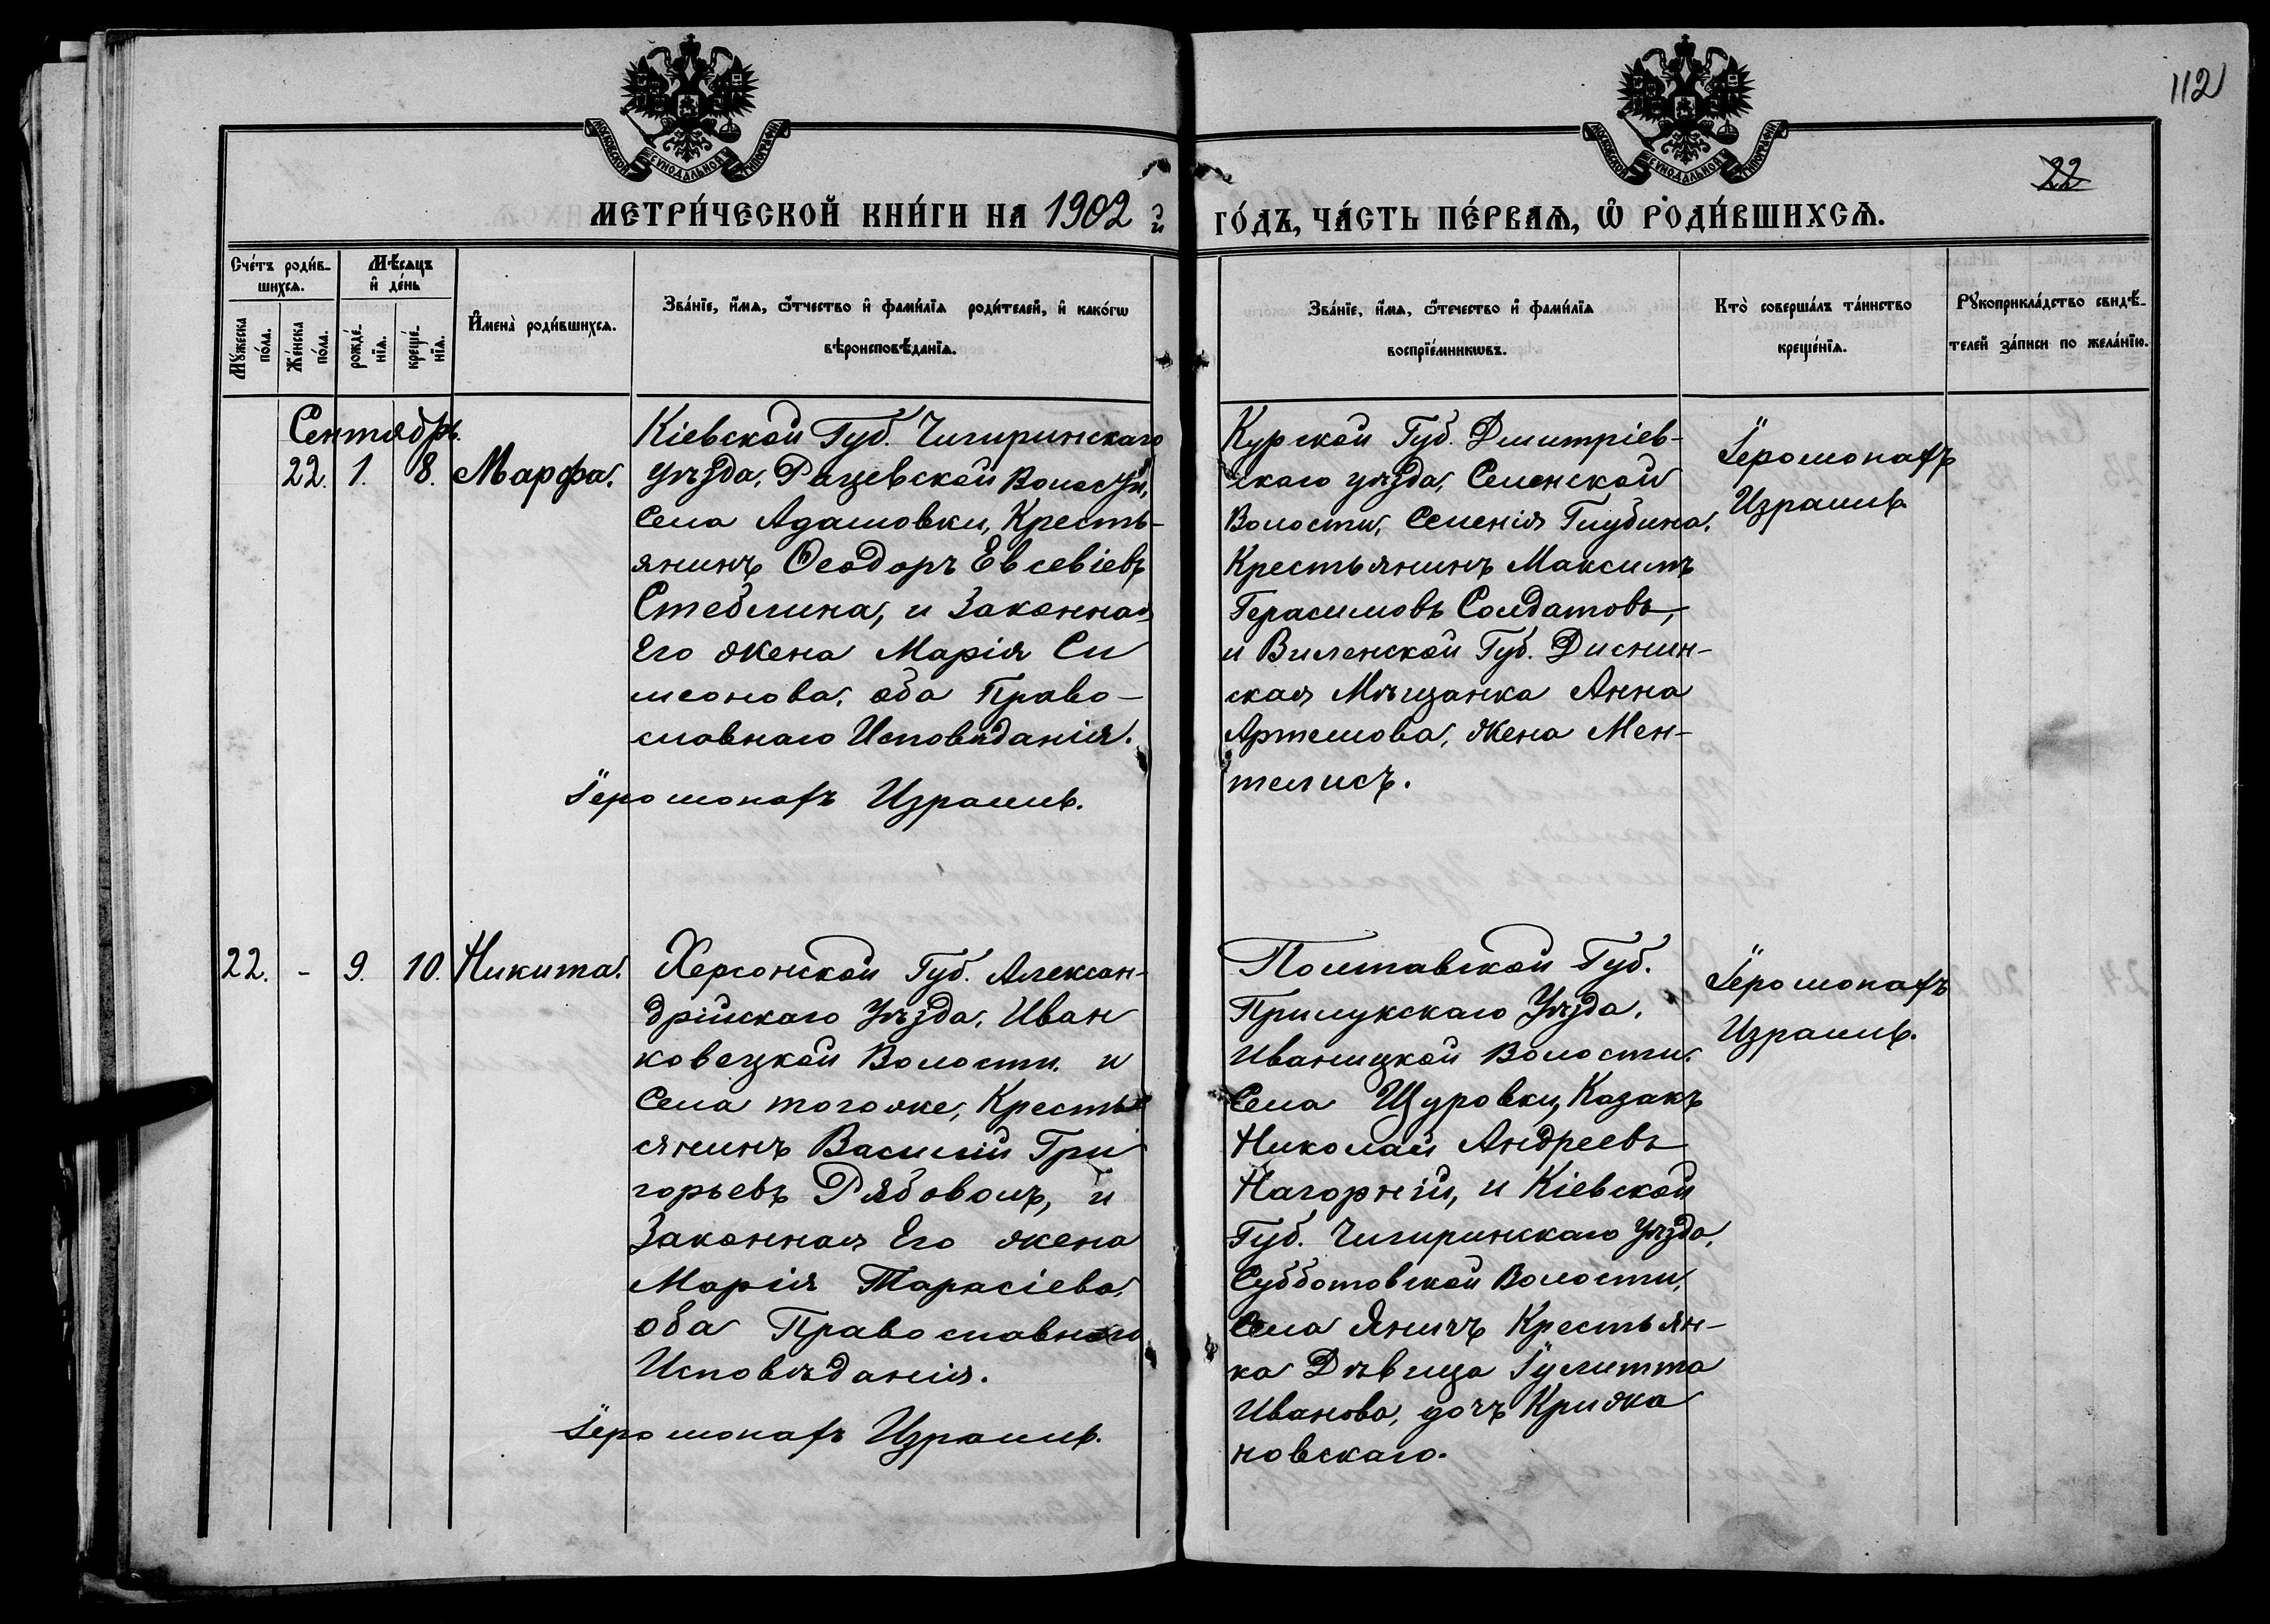 112
22
МОСКОВСКОЙ СѴНОДАЛЬНОЙ ТИПОГРАФІИ
МОСКОВСКОЙ СѴНОДАЛЬНОЙ ТИПОГРАФІИ
МЕТРИ́ЧЕСКОЙ КНИ́ГИ НА 1902 й
ГО́ДЪ, ЧА́СТЬ ПЕ́РВАѦ, Ѽ РОДИ́ВШИХСѦ.
Сче́тъ роди́в-
шихсѧ.
Мꙋ́жеска
по́ла.
Же́нска
по́ла.
Мѣ́сѧцъ
и҆ де́нь
рожде́-
нїѧ.
креще́-
нїѧ.
И҆мена̀ роди́вшихсѧ.
Зва́нїе, и҆́мѧ, ѻ҆́тчество и҆ фами́лїѧ роди́телей, и҆ како́гѡ
вѣроисповѣ́данїѧ.
Зва́нїе, и҆́мѧ, ѻ҆те́чество и҆ фами́лїѧ
воспрїе́мникѡвъ.
Кто̀ соверша́лъ та́инство
креще́нїѧ.
Рꙋкоприкла́дство свидѣ́-
телей за́писи по жела́нїю.
Сентябрь.
22. 1. 8. Марфа.
Кіевской Губ. Чигиринскаго
уѣзда, Рацевской Волости,
Села Адамовки, Кресть-
янинъ Ѳеодоръ Евсевіевъ
Стеблина, и Законная
Его жена Марія Си
меонова, оба Право-
славнаго Исповѣданія.
Іеромонахъ Израиль.
Курской Губ. Дмитріев-
скаго уѣзда, Селенской
Волости, Селенія Глубина,
Крестьянинъ Максимъ
Герасимовъ Солдатовъ,
и Виленской Губ. Диснин-
ская Мѣщанка Анна
Артемова, жена Мен-
телисъ.
Іеромонахъ
Израиль.
22. - 9. 10. Никита.
Херсонской Губ. Алексан-
дрійскаго Уѣзда, Иван
ковецкой Волости и
Села тогоже, Кресть
янинъ Василій Гри
горьевъ Рябоволъ, и
Законная Его жена
Марія Тарасіева,
оба Православнаго
Исповѣданія.
Іеромонахъ Израиль.
Полтавской Губ.
Прилукскаго Уѣзда,
Иваницкой Волости,
Села Щуровки, Казакъ
Николай Андреевъ
Нагорній, и Кіевской
Губ. Чигиринскаго Уѣзда,
Субботовской Волости,
Села Яничъ Крестьян-
ка Дѣвица Іулитта
Иванова, дочъ Крижа
новскаго.
Іеромонахъ
Израиль.